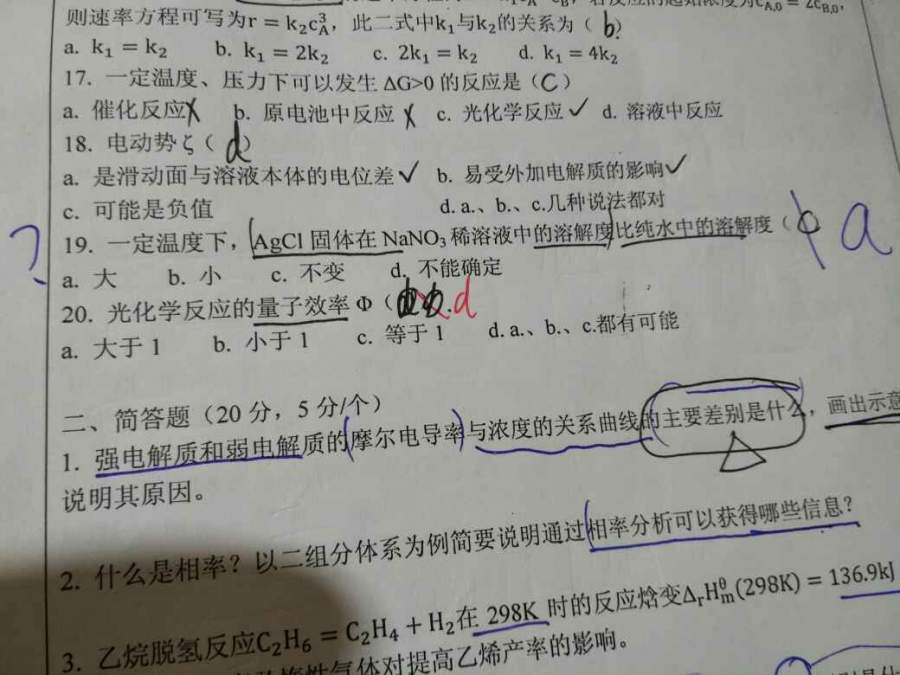 则速率方程可写为r = k₂c³A，此二式中k₁与k₂的关系为（ b?
a. k₁ = k₂ b. k₁ = 2k₂ c. 2k₁ = k₂ d. k₁ = 4k₂
17. 一定温度、压力下可以发生 ΔG>0 的反应是（C）
a. 催化反应 b. 原电池中反应 c. 光化学反应✓ d. 溶液中反应
18. 电动势ζ（d）
a. 是滑动面与溶液本体的电位差✓ b. 易受外加电解质的影响✓
c. 可能是负值 d. a.、b.、c.几种说法都对
? 19. 一定温度下，AgCl 固体在 NaNO₃ 稀溶液中的溶解度比纯水中的溶解度（ a
a. 大 b. 小 c. 不变 d. 不能确定
20. 光化学反应的量子效率 Φ（ d
a. 大于 1 b. 小于 1 c. 等于 1 d. a.、b.、c.都有可能
二、简答题（20 分，5 分/个）
1. 强电解质和弱电解质的摩尔电导率与浓度的关系曲线的主要差别是什么，画出示意
说明其原因。
2. 什么是相率？以二组分体系为例简要说明通过相率分析可以获得哪些信息？
3. 乙烷脱氢反应C₂H₆ = C₂H₄ + H₂在 298K 时的反应焓变ΔᵣHᶿm(298K) = 136.9kJ
性气体对提高乙烯产率的影响。